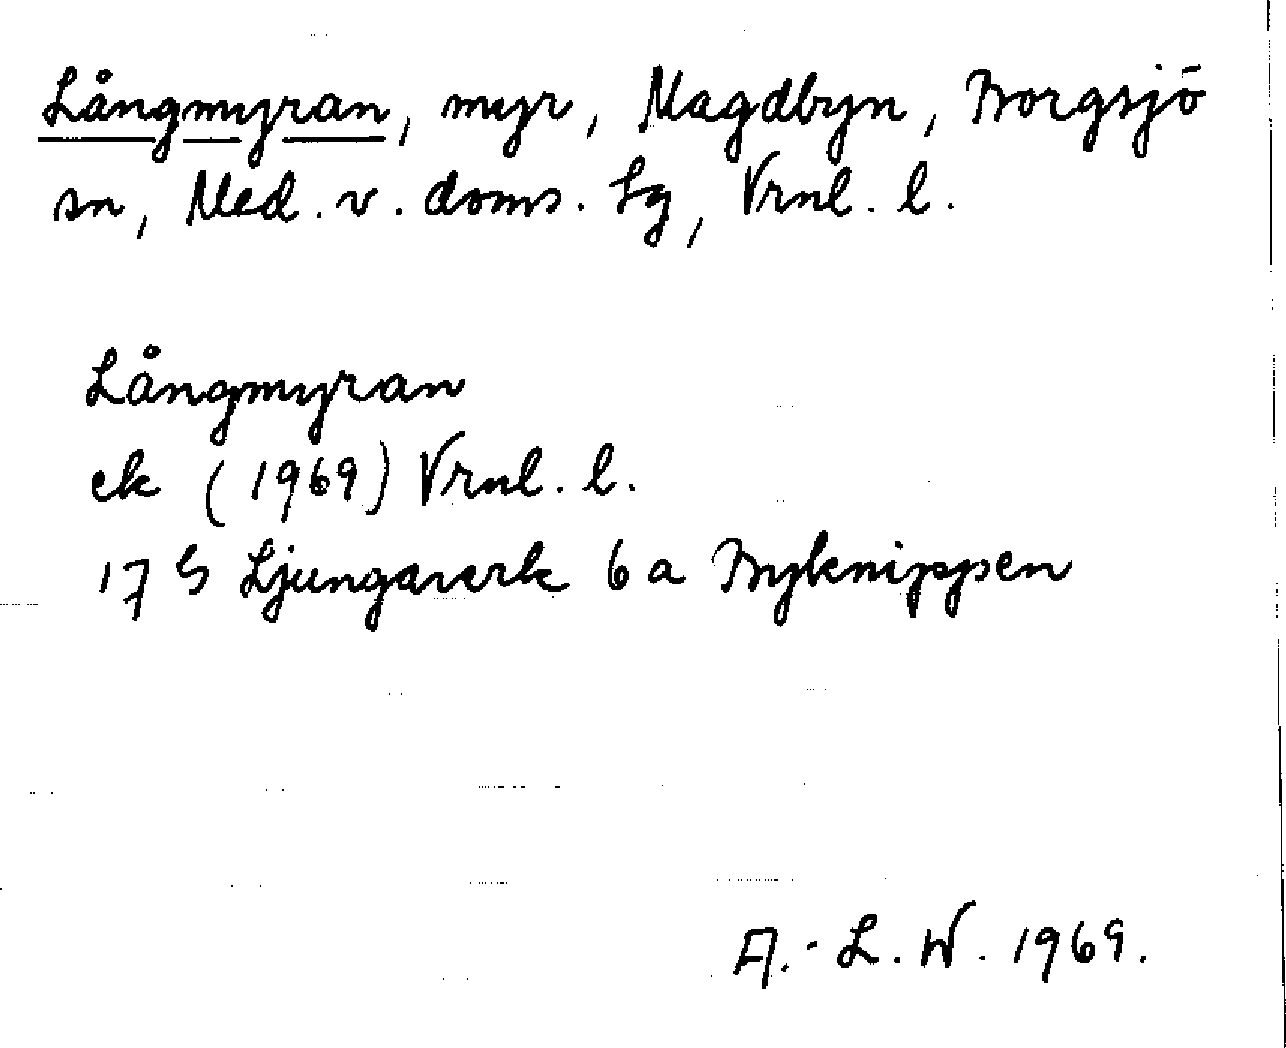 Långmyran, myr, Magdbyn, Borgsjö
sn, Med. v. doms. Lg, Vrnl. l.
Långmyran
ek (1969) Vrnl. l.
17 G Ljungaverk 6 a Byknippen
A.-L. W. 1969.